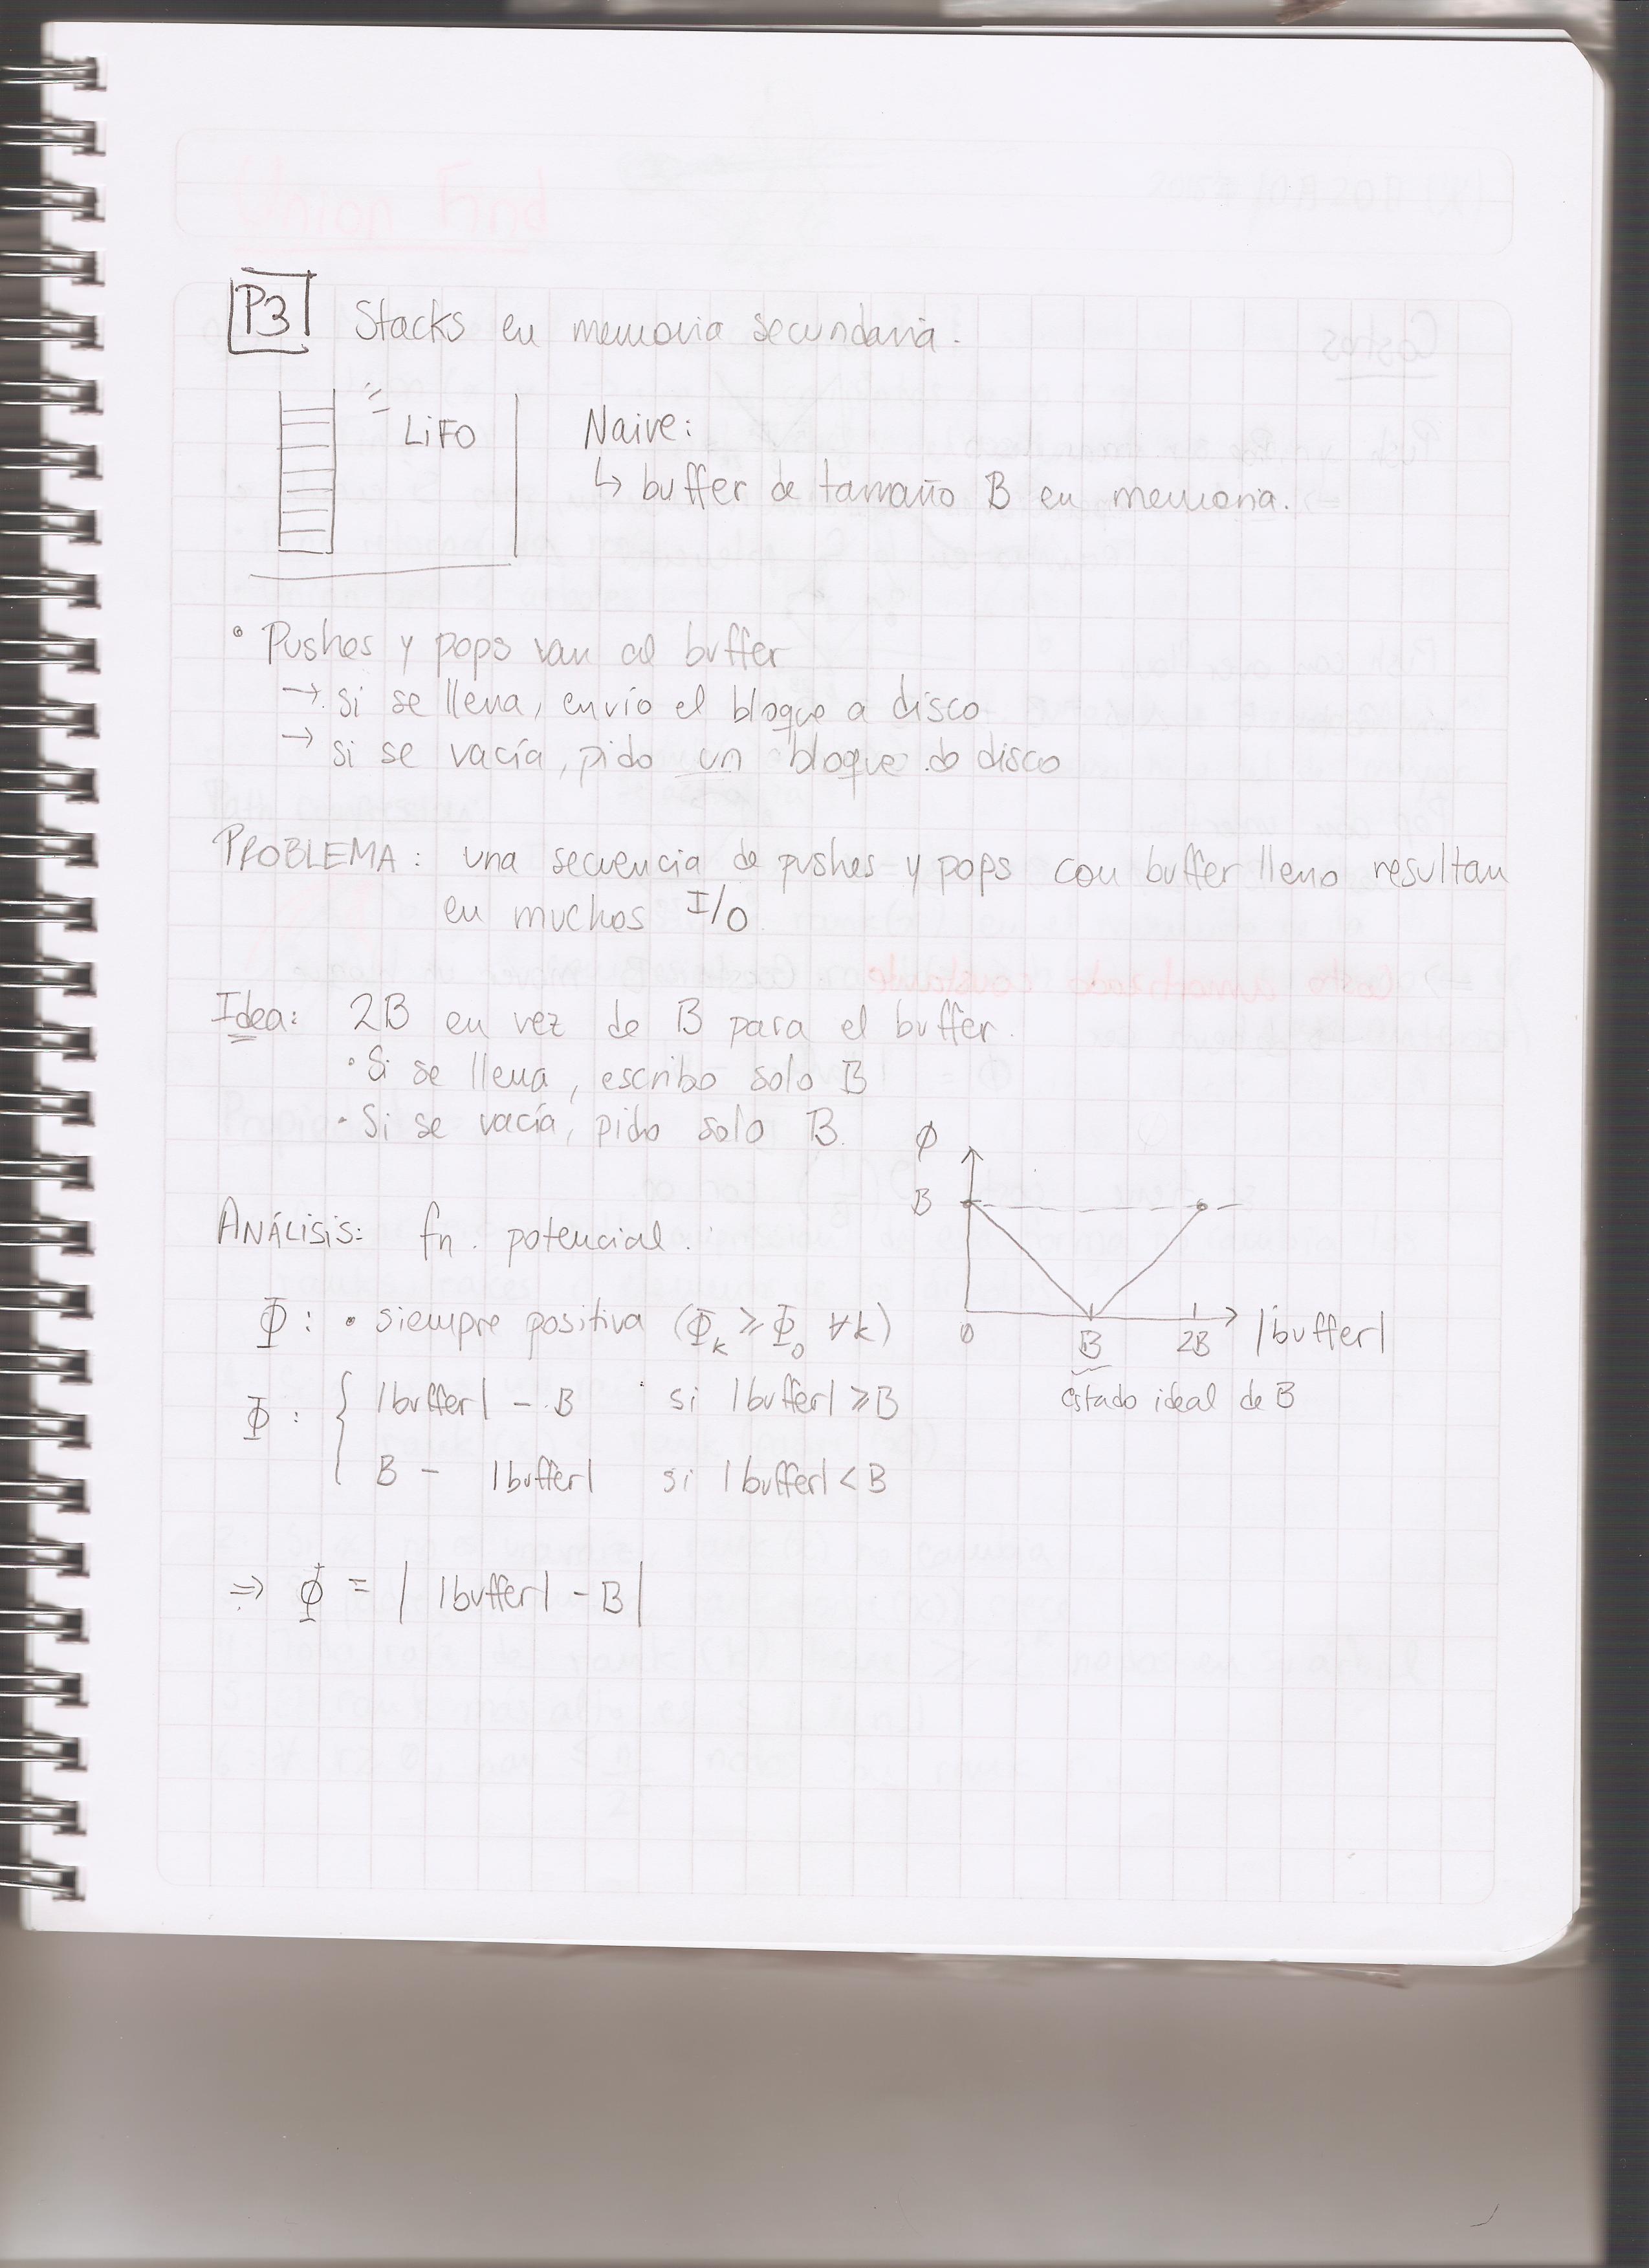 P3 Stacks en memoria secundaria.
LiFO
Naive:
↳ buffer de tamaño B en memoria.
• Pushes y pops van al buffer
→ si se llena, envío el bloque a disco
→ si se vacía, pido un bloque do disco
PROBLEMA: una secuencia de pushes y pops con buffer lleno resultan
en muchos I/O
Idea: 2B en vez de B para el buffer.
• Si se llena, escribo solo B
• Si se vacía, pido solo B.
ANÁLISIS: fn. potencial.
Φ
B
0 B 2B |buffer|
estado ideal de B
Φ: • siempre positiva (Φₖ ≥ Φ₀ ∀k)
Φ: { |buffer| - B si |buffer| ≥ B
B - |buffer| si |buffer| < B
⇒ Φ = | |buffer| - B |
Union Find